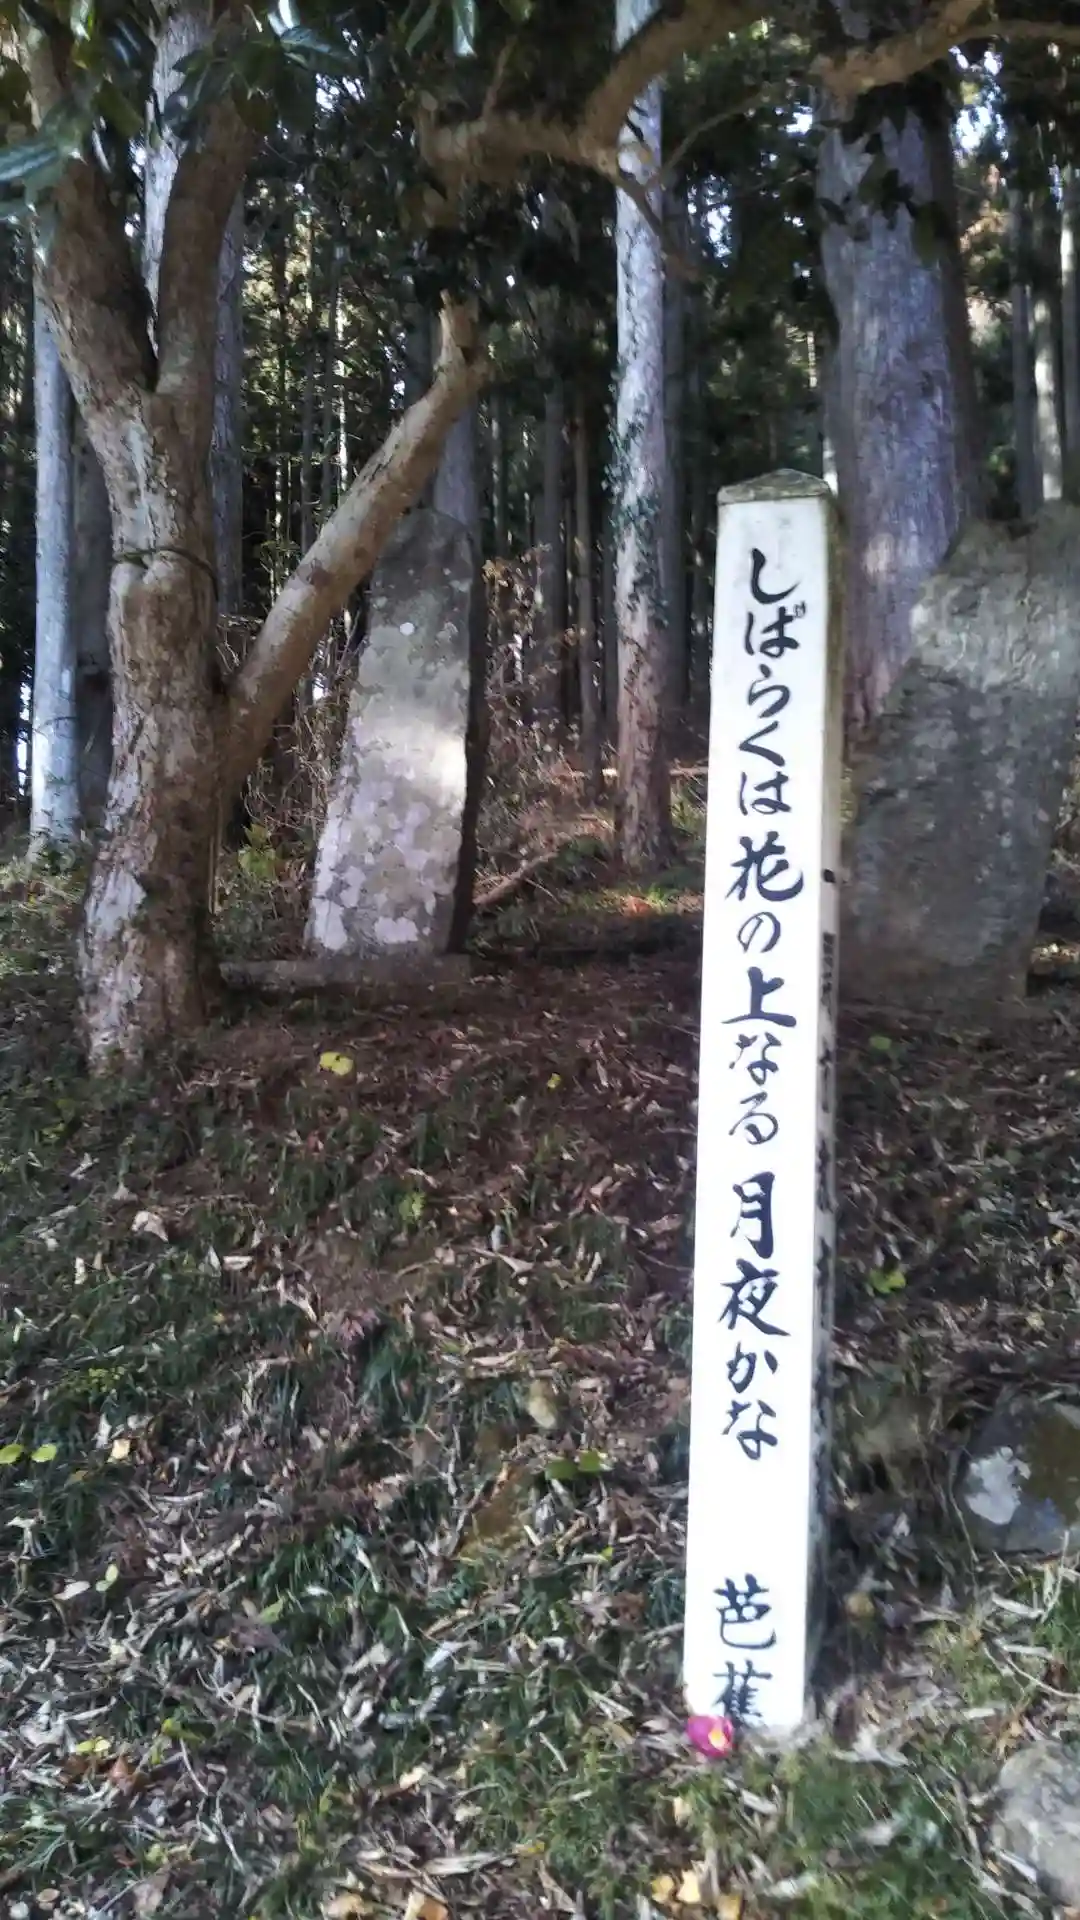 しばらくは花の上なる月夜かな
芭蕉